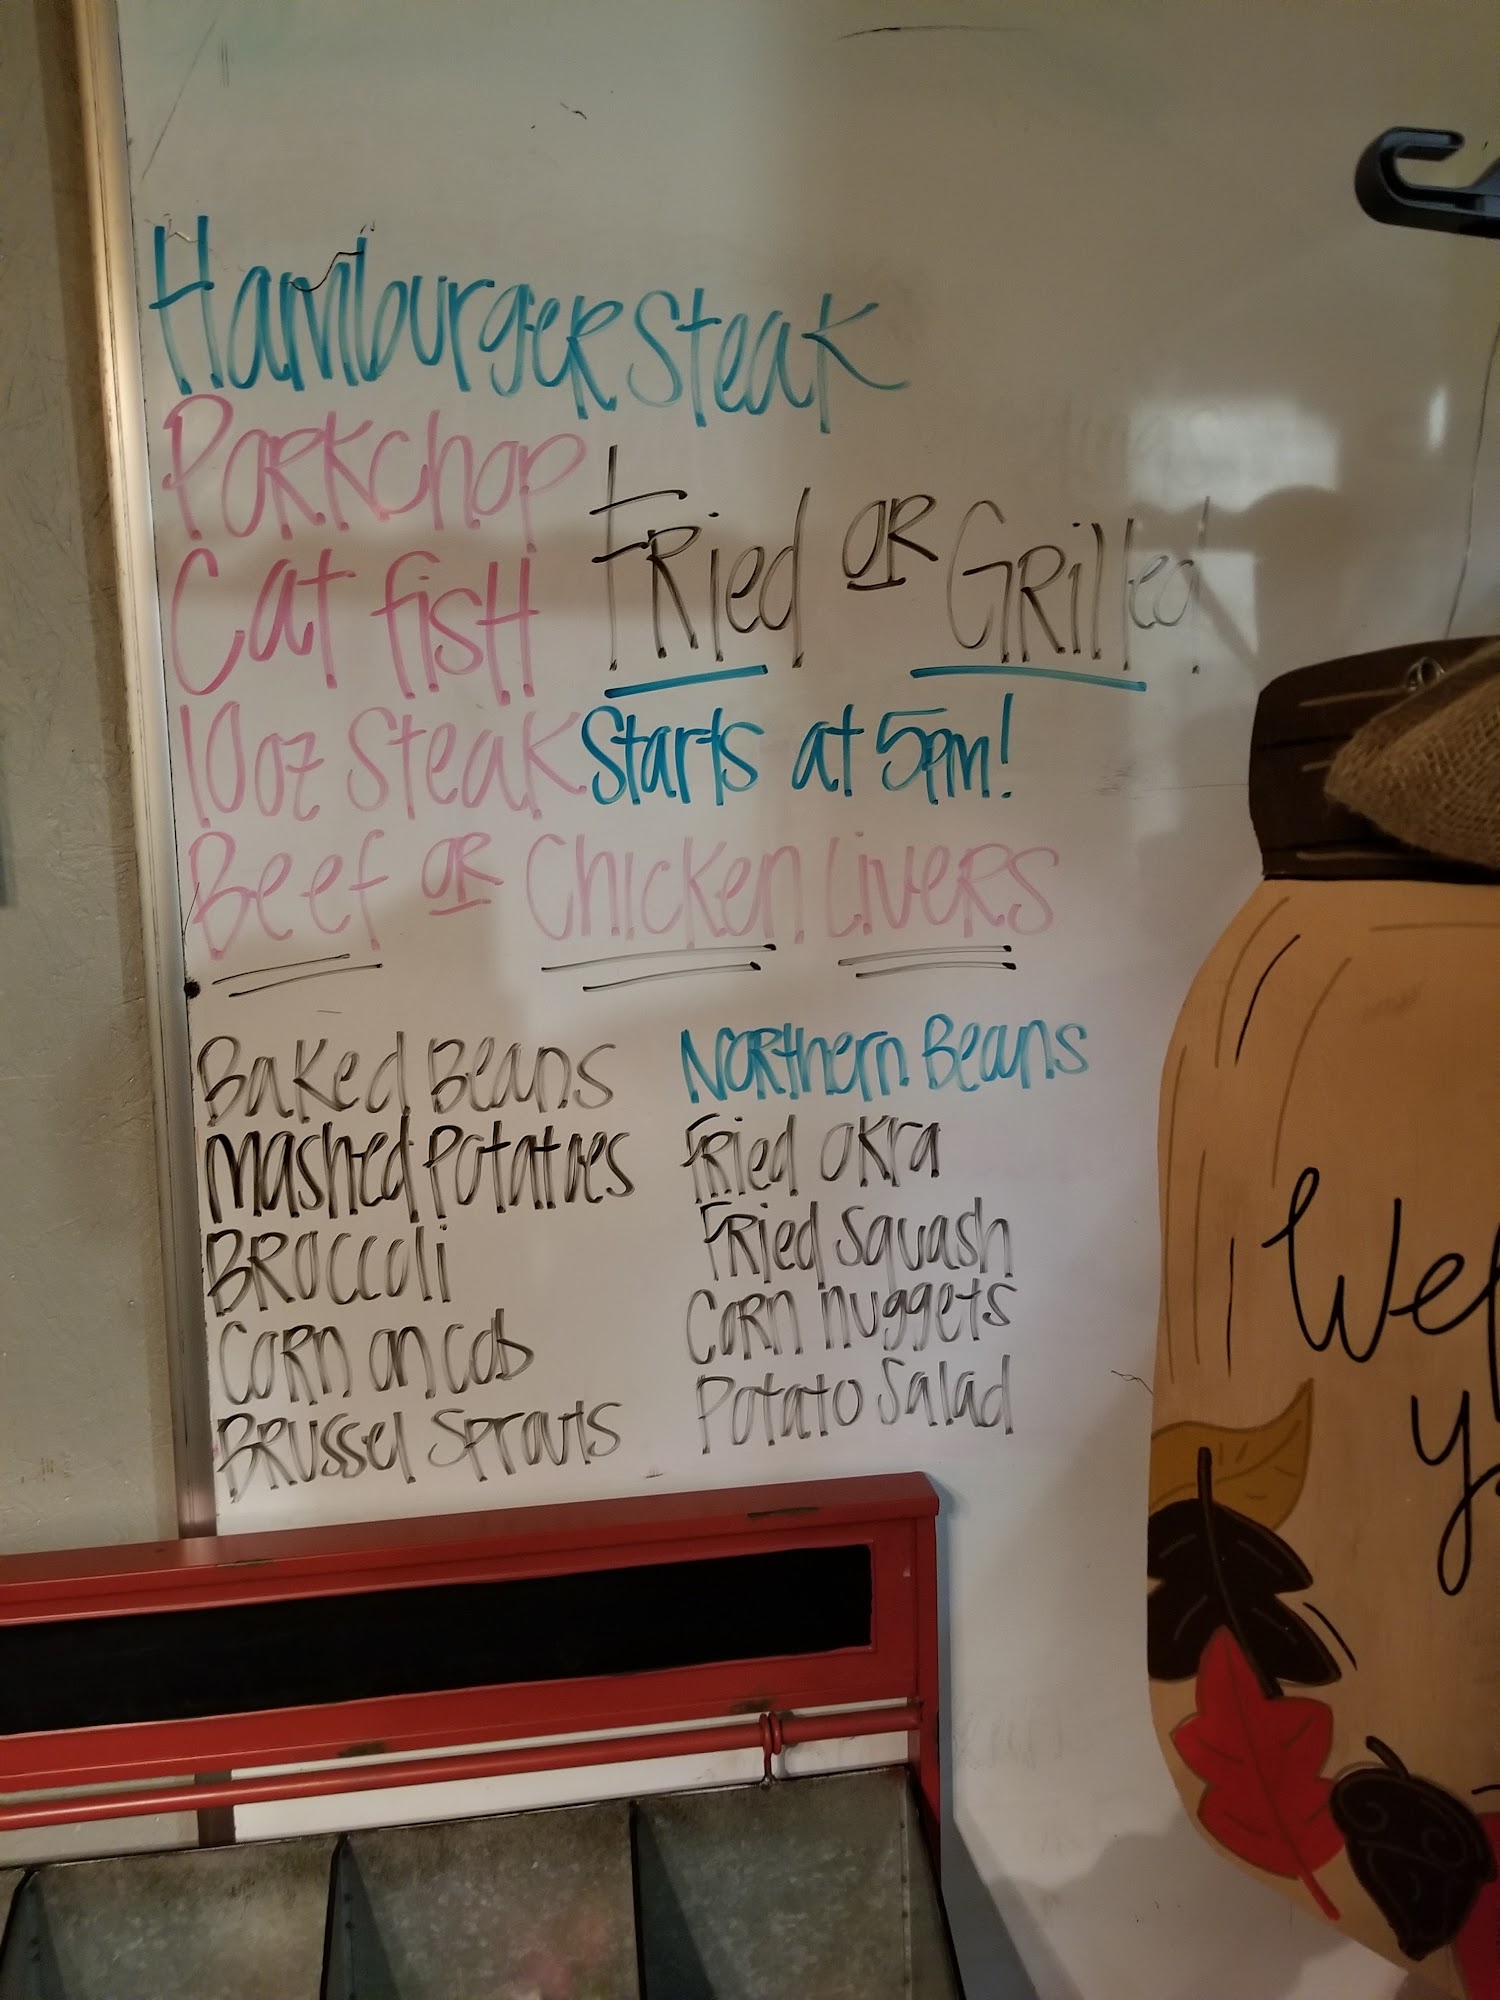 Hamburger Steak
Porkchop
Cat fish Fried or Grilled
10oz Steak Starts at 5pm!
Beef or Chicken Livers
Baked Beans
Mashed Potatoes
Broccoli
Corn on Cob
Brussel Sprouts
Northern Beans
Fried Okra
Fried Squash
Corn nuggets
Potato Salad